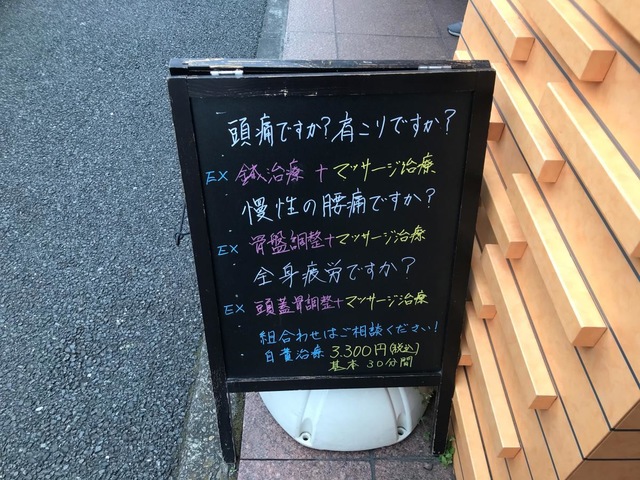 頭痛ですか?肩こりですか?
EX 鍼治療+マッサージ治療
慢性の腰痛ですか?
EX 骨盤調整+マッサージ治療
全身疲労ですか?
EX 頭蓋骨調整+マッサージ治療
組合わせはご相談ください!
自費治療 3,300円(税込)
基本 30分間